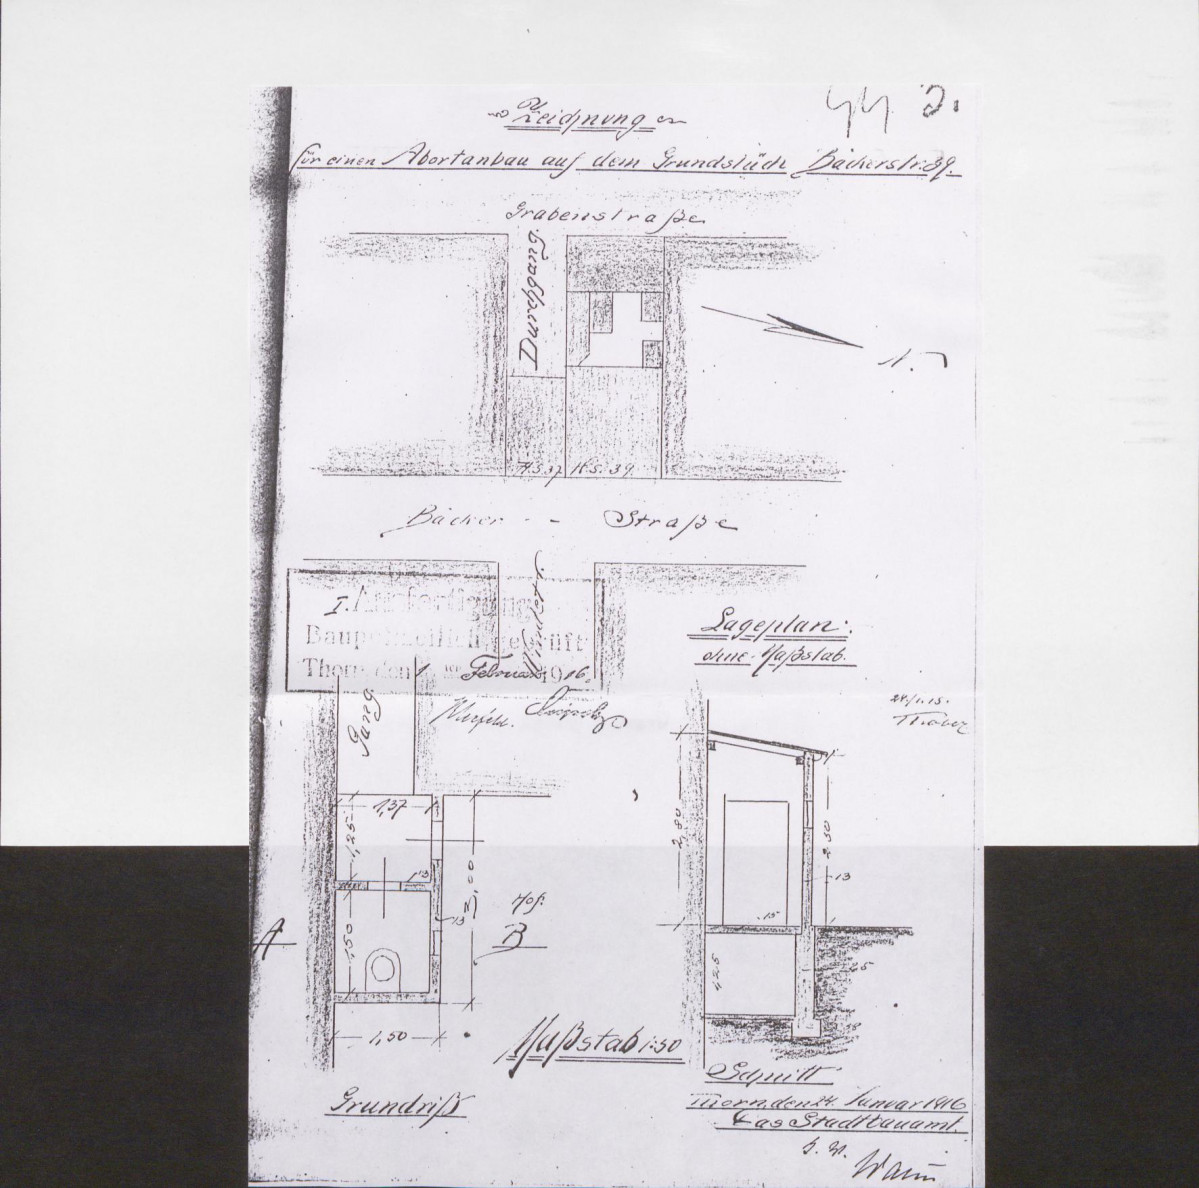 44 2.
Zeichnung
für einen Abortanbau auf dem Grundstück Bäckerstr. 39.
Grabenstraße
Durchgang.
N.
H.s. 37 H.s. 39.
Bäcker - - Straße
Windstr.
I. Ausfertigung
Baupolizeilich geprüft
Thorn, den Februar 1916.
Lageplan:
ohne Maßstab.
24/1.15.
Gang
1,37
1,25
13
3,00
Hof.
13
1,50
A
B
1,50
Maßstab 1:50
Grundriß
2,80
2,50
13
15
1,25
25
Schnitt
Thorn, den 24. Januar 1916
Das Stadtbauamt.